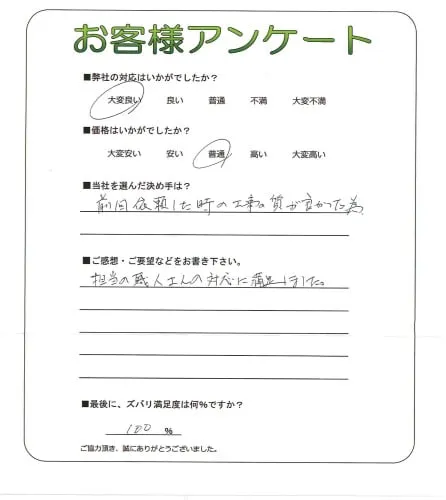 お客様アンケート
■弊社の対応はいかがでしたか?
大変良い 良い 普通 不満 大変不満
■価格はいかがでしたか?
大変安い 安い 普通 高い 大変高い
■当社を選んだ決め手は?
前回依頼した時の工事の質が良かった為
■ご感想・ご要望などをお書き下さい。
担当の職人さんの対応に満足しました。
■最後に、ズバリ満足度は何%ですか?
100 %
ご協力頂き、誠にありがとうございました。